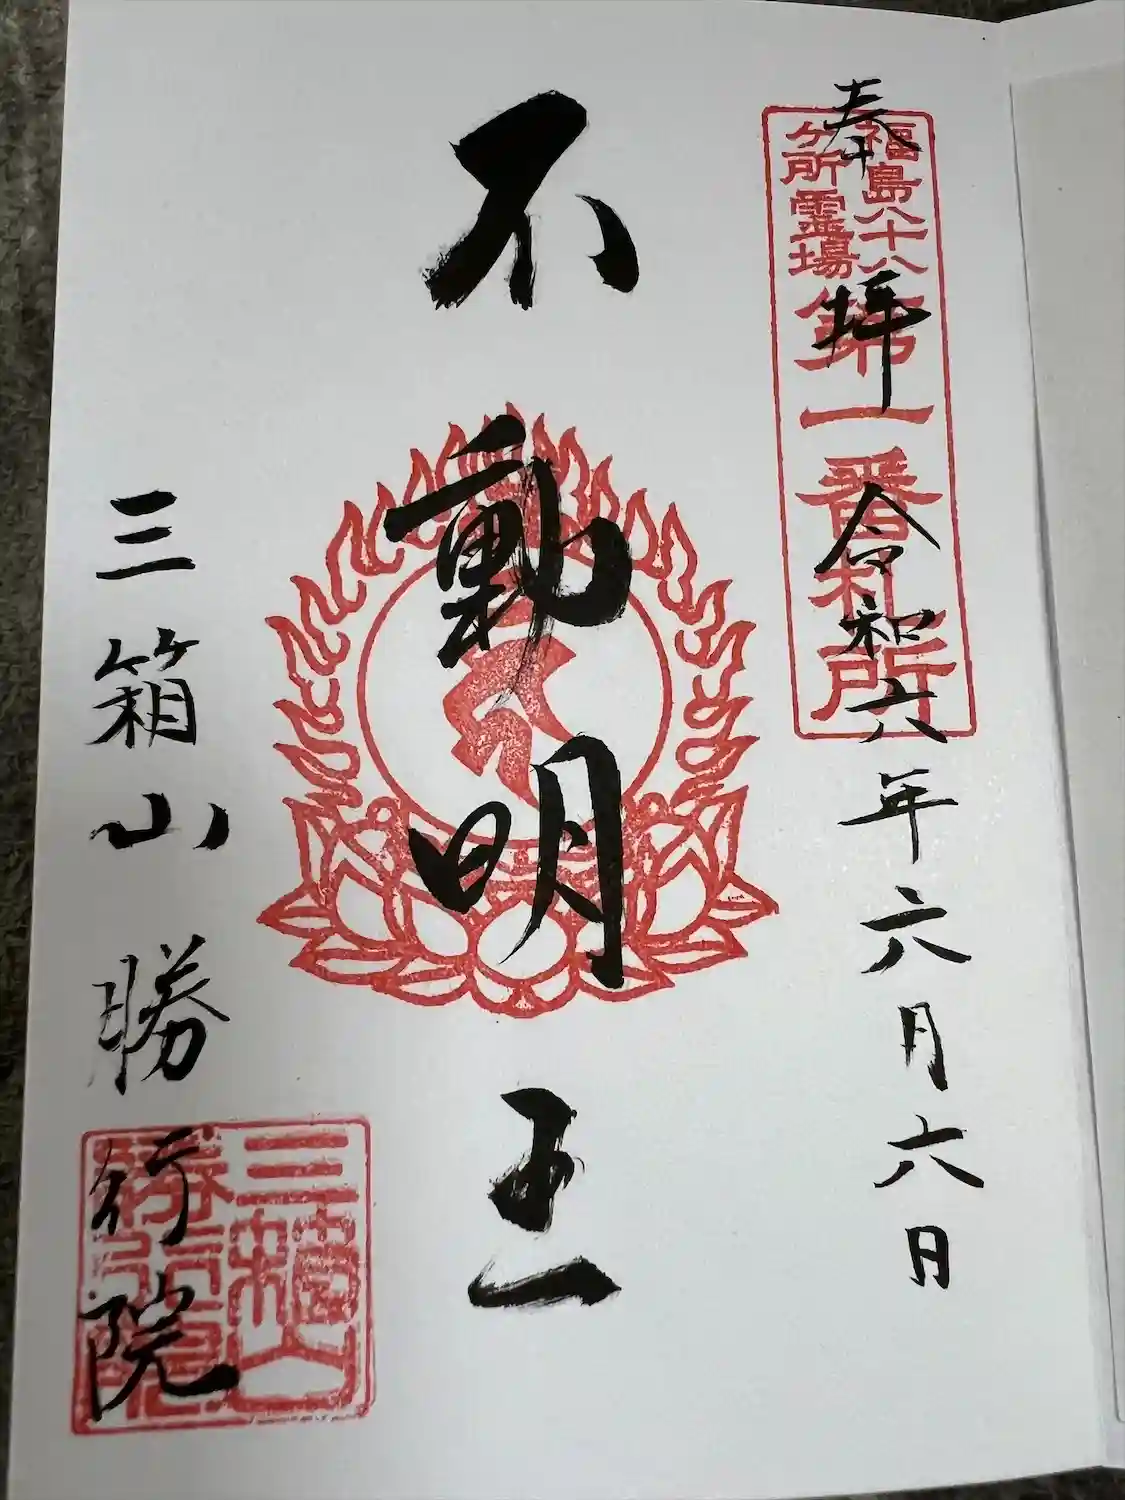 奉拝
令和六年六月六日
福島八十八
ヶ所霊場
第一番札所
不動明王
三箱山勝行院
三箱山
勝行院